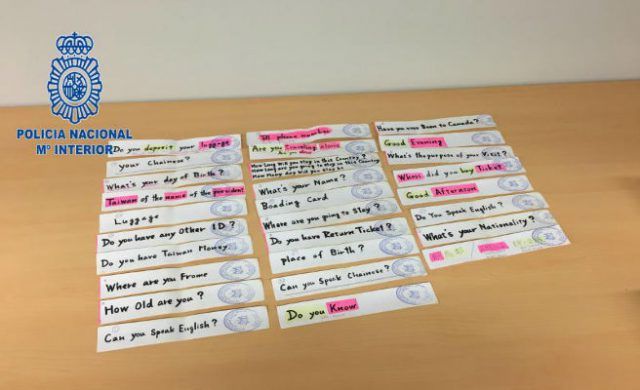 POLICIA NACIONAL
Mº INTERIOR
Do you deposit your luggage
your Chainese?
What's your day of Birth?
Taiwan of the name of the president
Luggage
Do you have any Other ID?
Do you have Taiwan Money
Where are you Frome
How Old are you?
Can you Speak English?
phone number
Are you traveling alone
How Long will you stay in this Country?
How long are you going to stay in this Country
How Many day will you stay in
What's your Name?
Boading Card
Where are you going to Stay?
Do you have Return Ticket?
place of Birth?
Can you Speck Chainese?
Do you Know
Have you ever Been to Canada?
Good Evening
What's the purpose of your Visit?
did you buy Ticket
Good Afternoon
Do You Speak English?
What's your Nationality?